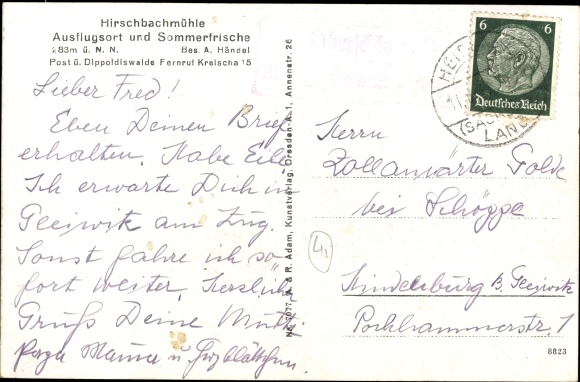 Hirschbachmühle
Ausflugsort und Sommerfrische
283m ü. N. N. Bes. A. Händel
Post ü. Dippoldiswalde Fernruf Kreischa 15
Lieber Fred!
Eben Deinen Brief
erhalten. Habe Eile
Ich erwarte Dich in
Gleiwitz am Zug.
Sonst fahre ich so-
fort weiter. Herzlich
Gruß Deine Mutti
Mama u.
R. Adam, Kunstverlag, Dresden-A. 1, Annenstr. 26
6 6
Deutsches Reich
LAND
Herrn
Zollanwärter Golde
bei Schöppe
Hindenburg b. Gleiwitz
Pochhammerstr. 1
8823